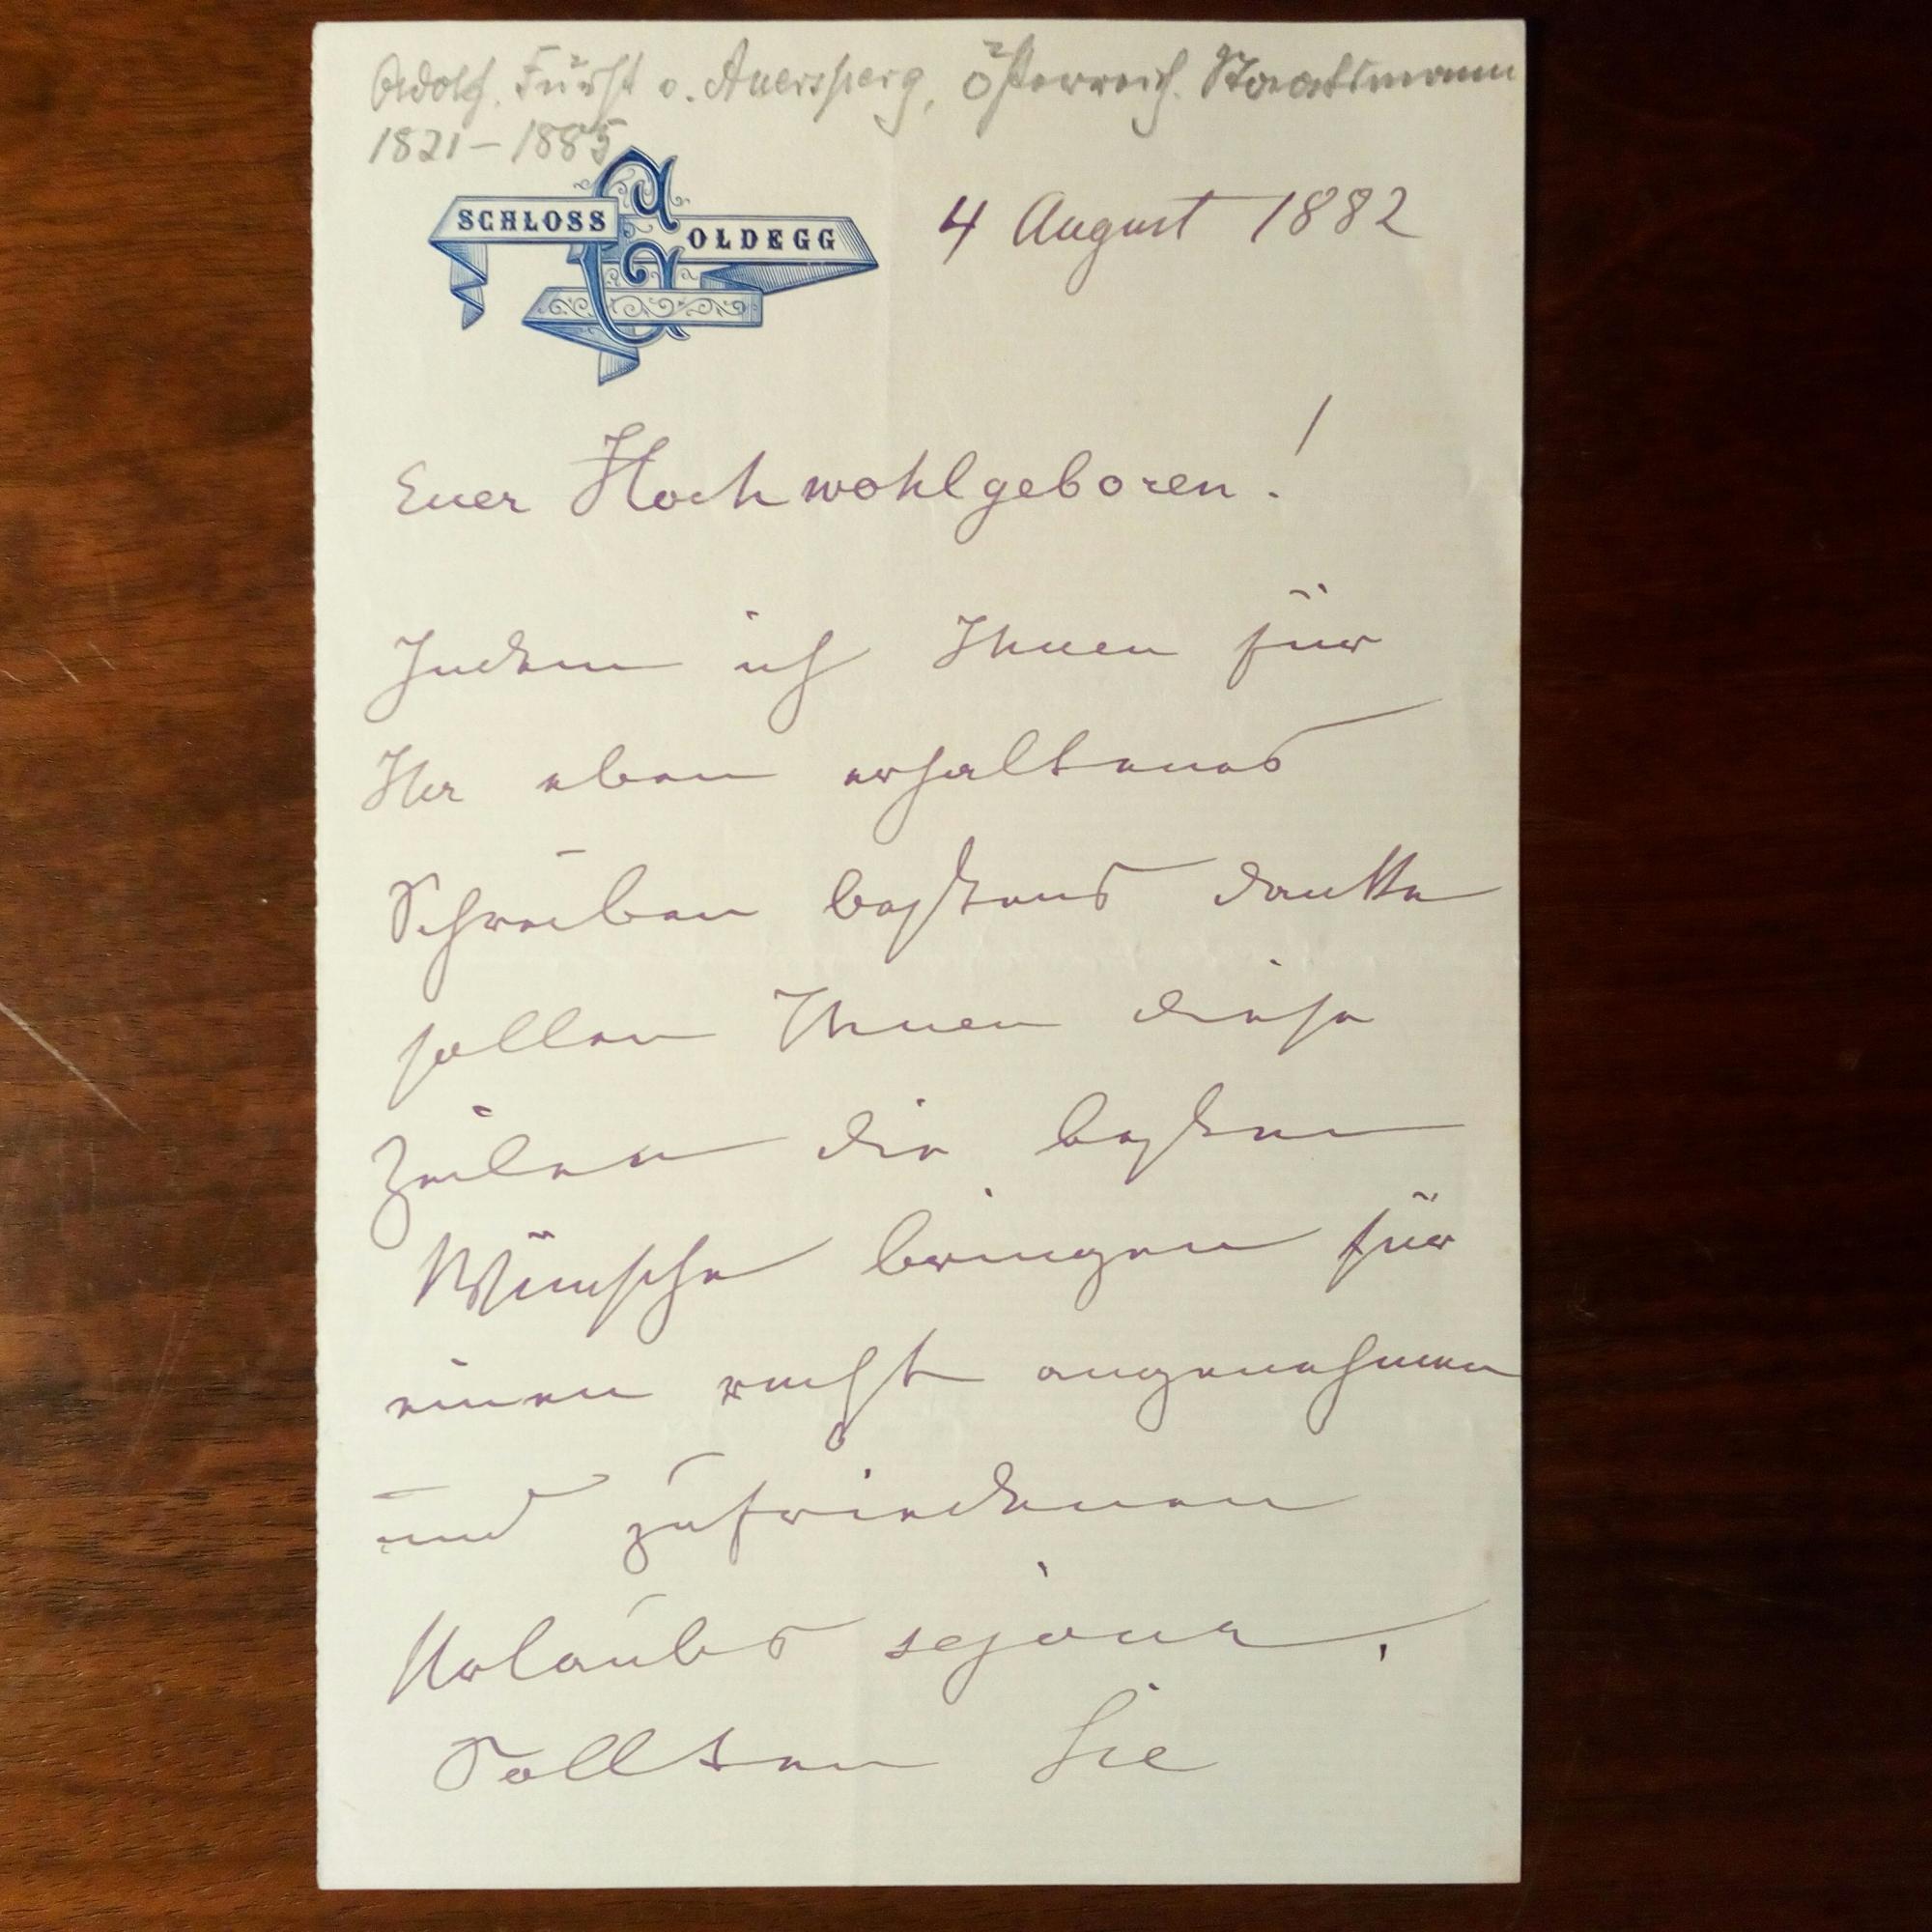 Adolf. Fürst v. Auersperg, Österreich. Staatsmann
1821 – 1885
SCHLOSS GOLDEGG
4 August 1882
Euer Hochwohlgeboren!
Indem ich Ihnen für
Ihr eben erhaltenes
Schreiben bestens danke
sollen Ihnen diese
Zeilen die besten
Wünsche bringen für
einen recht angenehmen
und zufriedenen
Urlaubs sejour.
Sollten Sie